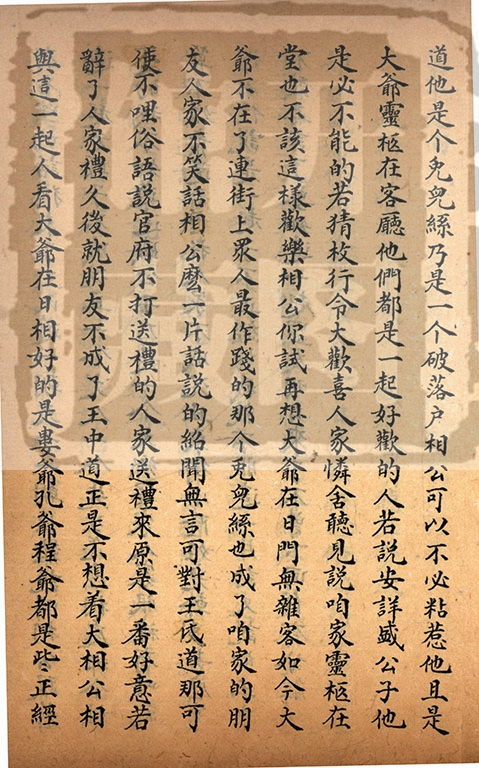 道他是个兎兒絲乃是一个破落户相公可以不必粘惹他且是
大爺靈柩在客廳他們都是一起好歡的人若說安詳盛公子他
是必不能的若猜枚行令大歡喜人家憐舍聽見說咱家靈柩在
堂也不該這樣歡樂相公你試再想大爺在日門無雜客如今大
爺不在了連街上眾人最作踐的那个兎兒絲也成了咱家的朋
友人家不笑話相公麽一片話說的紹聞無言可對王氏道那可
使不哩俗語說官府不打送禮的人家送禮來原是一番好意若
辭了人家禮久後就朋友不成了王中道正是不想着大相公相
與這一起人看大爺在日相好的是婁爺孔爺程爺都是些正經